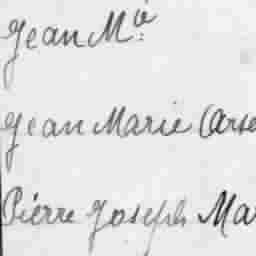 Jean M.ie
Jean Marie (Arse
Pierre Joseph Ma